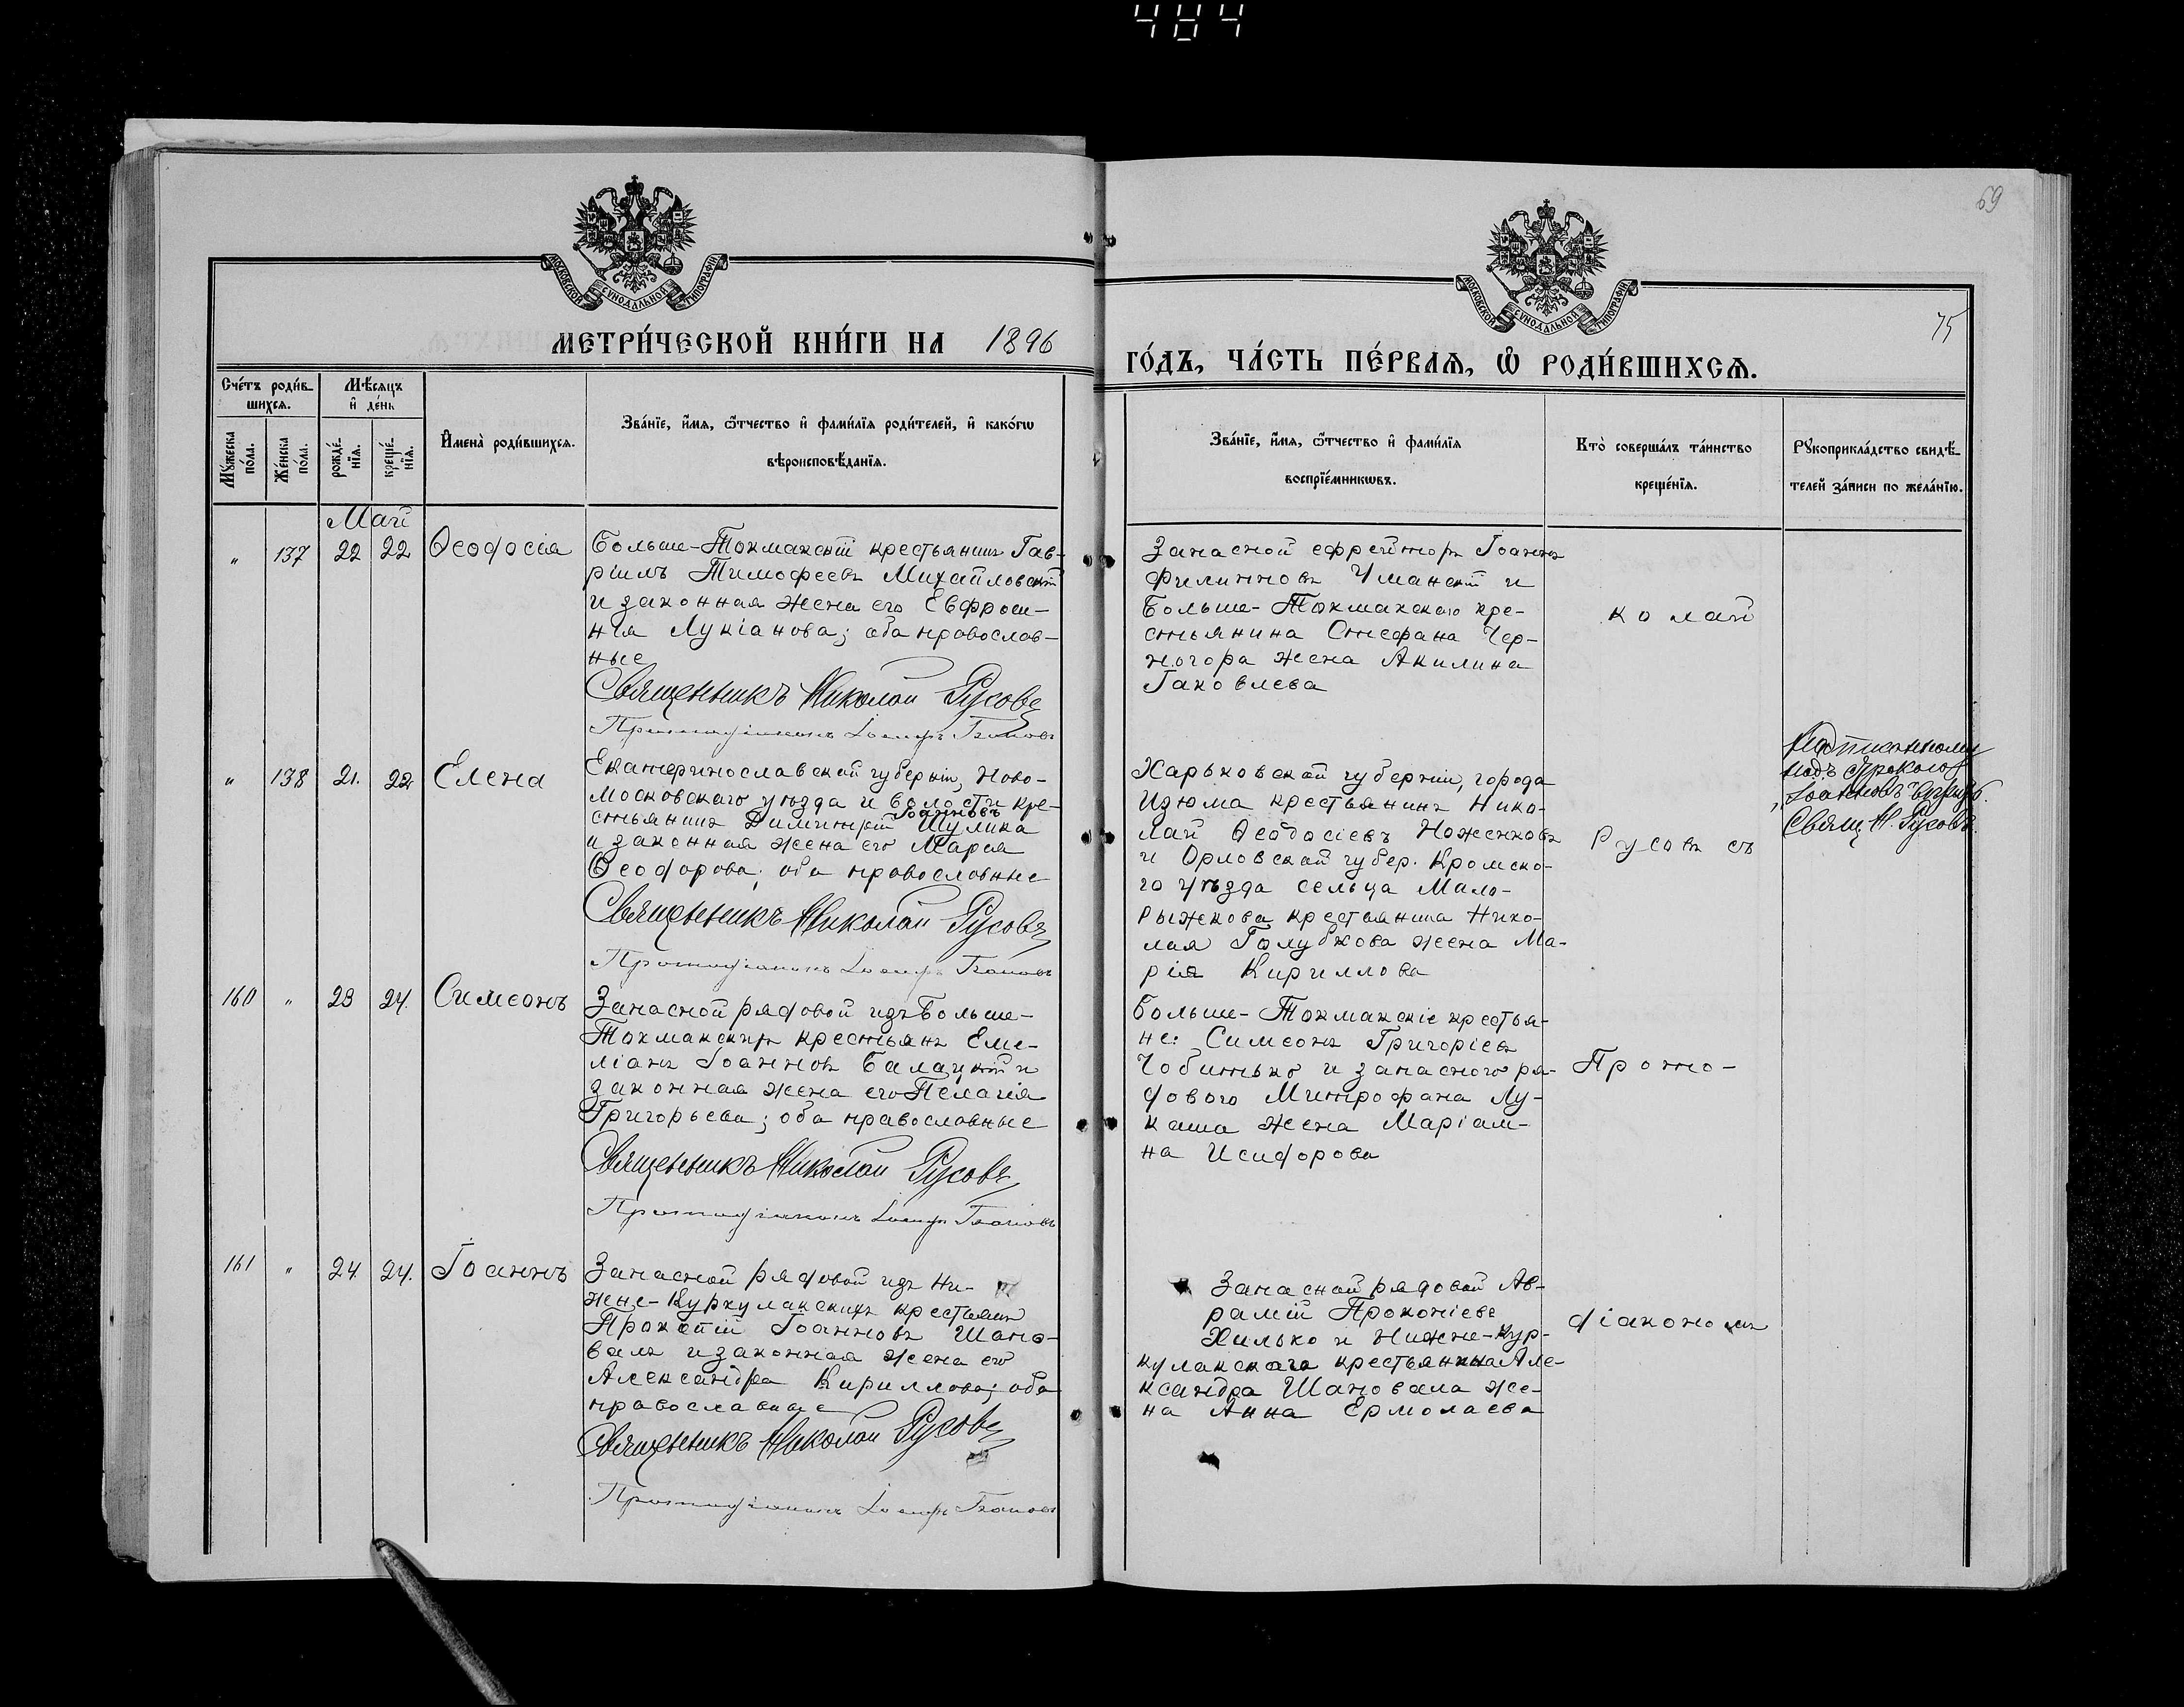 484
69
75
МОСКОВСКОЙ СУНОДАЛЬНОЙ ТИПОГРАФІИ
МОСКОВСКОЙ СУНОДАЛЬНОЙ ТИПОГРАФІИ
МЕТРИ́ЧЕСКОЙ КНИ́ГИ НА 1896
ГО́ДЪ, ЧА́СТЬ ПЕ́РВАѦ, Ѡ҆ РОДИ́ВШИХСѦ.
Сче́тъ роди́в-
шихсѧ.
Мѣ́сѧцъ
и҆ де́нь
Мꙋ́жеска
по́ла.
Же́нска
по́ла.
рожде́-
нїѧ.
креще́-
нїѧ.
И҆мена̀ роди́вшихсѧ.
Зва́нїе, и҆́мѧ, ѻ҆́тчество и҆ фами́лїѧ роди́телей, и҆ како́гѡ
вѣроисповѣ́данїѧ.
Зва́нїе, и҆́мѧ, ѻ҆́тчество и҆ фами́лїѧ
воспрїе́мникѡвъ.
Кто̀ соверша́лъ та́инство
креще́нїѧ.
Рꙋкоприкла́дство свидѣ́-
телей за́писи по жела́нїю.
Май
" 137 22 22 Ѳеодосія
Больше-Токмакскій крестьянинъ Гав-
ріилъ Тимофеевъ Михайловскій
и законная жена его Евфроси-
нія Лукіанова; оба православ-
ные
Священникъ Николай Русовъ
Протодіаконъ Іосифъ
Запасной ефрейторъ Іоаннъ
Филипповъ Уманскій и
Больше-Токмакскаго кре-
стьянина Стефана Чер-
ногора жена Акилина
Іаковлева
колай
" 138 21. 22 Елена
Екатеринославской губерніи, Ново-
московскаго уѣзда и волости кре-
Іоанновъ
стьянинъ Димитрій Шулика
и законная жена его Марія
Ѳеодорова; оба православные
Священникъ Николай Русовъ
Протодіаконъ Іосифъ
Харьковской губерніи, города
Изюма крестьянинъ Нико-
лай ѲеодосіевъНоженковъ
и Орловской губер. Кромско-
го уѣзда сельца Мало-
Рыжкова крестьянина Нико-
лая Голубкова жена Ма-
рія Кириллова
Русовъ съ
Надписанному
надъ строкою
"Іоанновъ" вѣрить.
Свящ. Н. Русовъ.
160 " 23 24. Симеонъ
Запасной рядовой изъ Больше-
Токмакскихъ крестьянъ Еме-
ліанъ Іоанновъ Балацкій и
законная жена его Пелагія
Григорьева; оба православные
Священникъ Николай Русовъ
Протодіаконъ Іосифъ
Больше-Токмакскіе крестья-
не: Симеонъ Григоріевъ
Чобитько и запасного ря-
дового Митрофана Лу-
каша жена Маріам-
на Исидорова
Прото-
161 " 24 24. Іоаннъ
Запасной рядовой изъ Ни-
жне-Куркулакскихъ крестьянъ
Прокопій Іоанновъ Шапо-
валъ и законная жена его
Александра Кириллова; оба
православные
Священникъ Николай Русовъ
Протодіаконъ Іосифъ
Запасной рядовой Ав-
рамій Прокопіевъ
Хилько и Нижне-Кур-
кулакскаго крестьянина Але-
ксандра Шаповала же-
на Анна Ермолаева
діакономъ